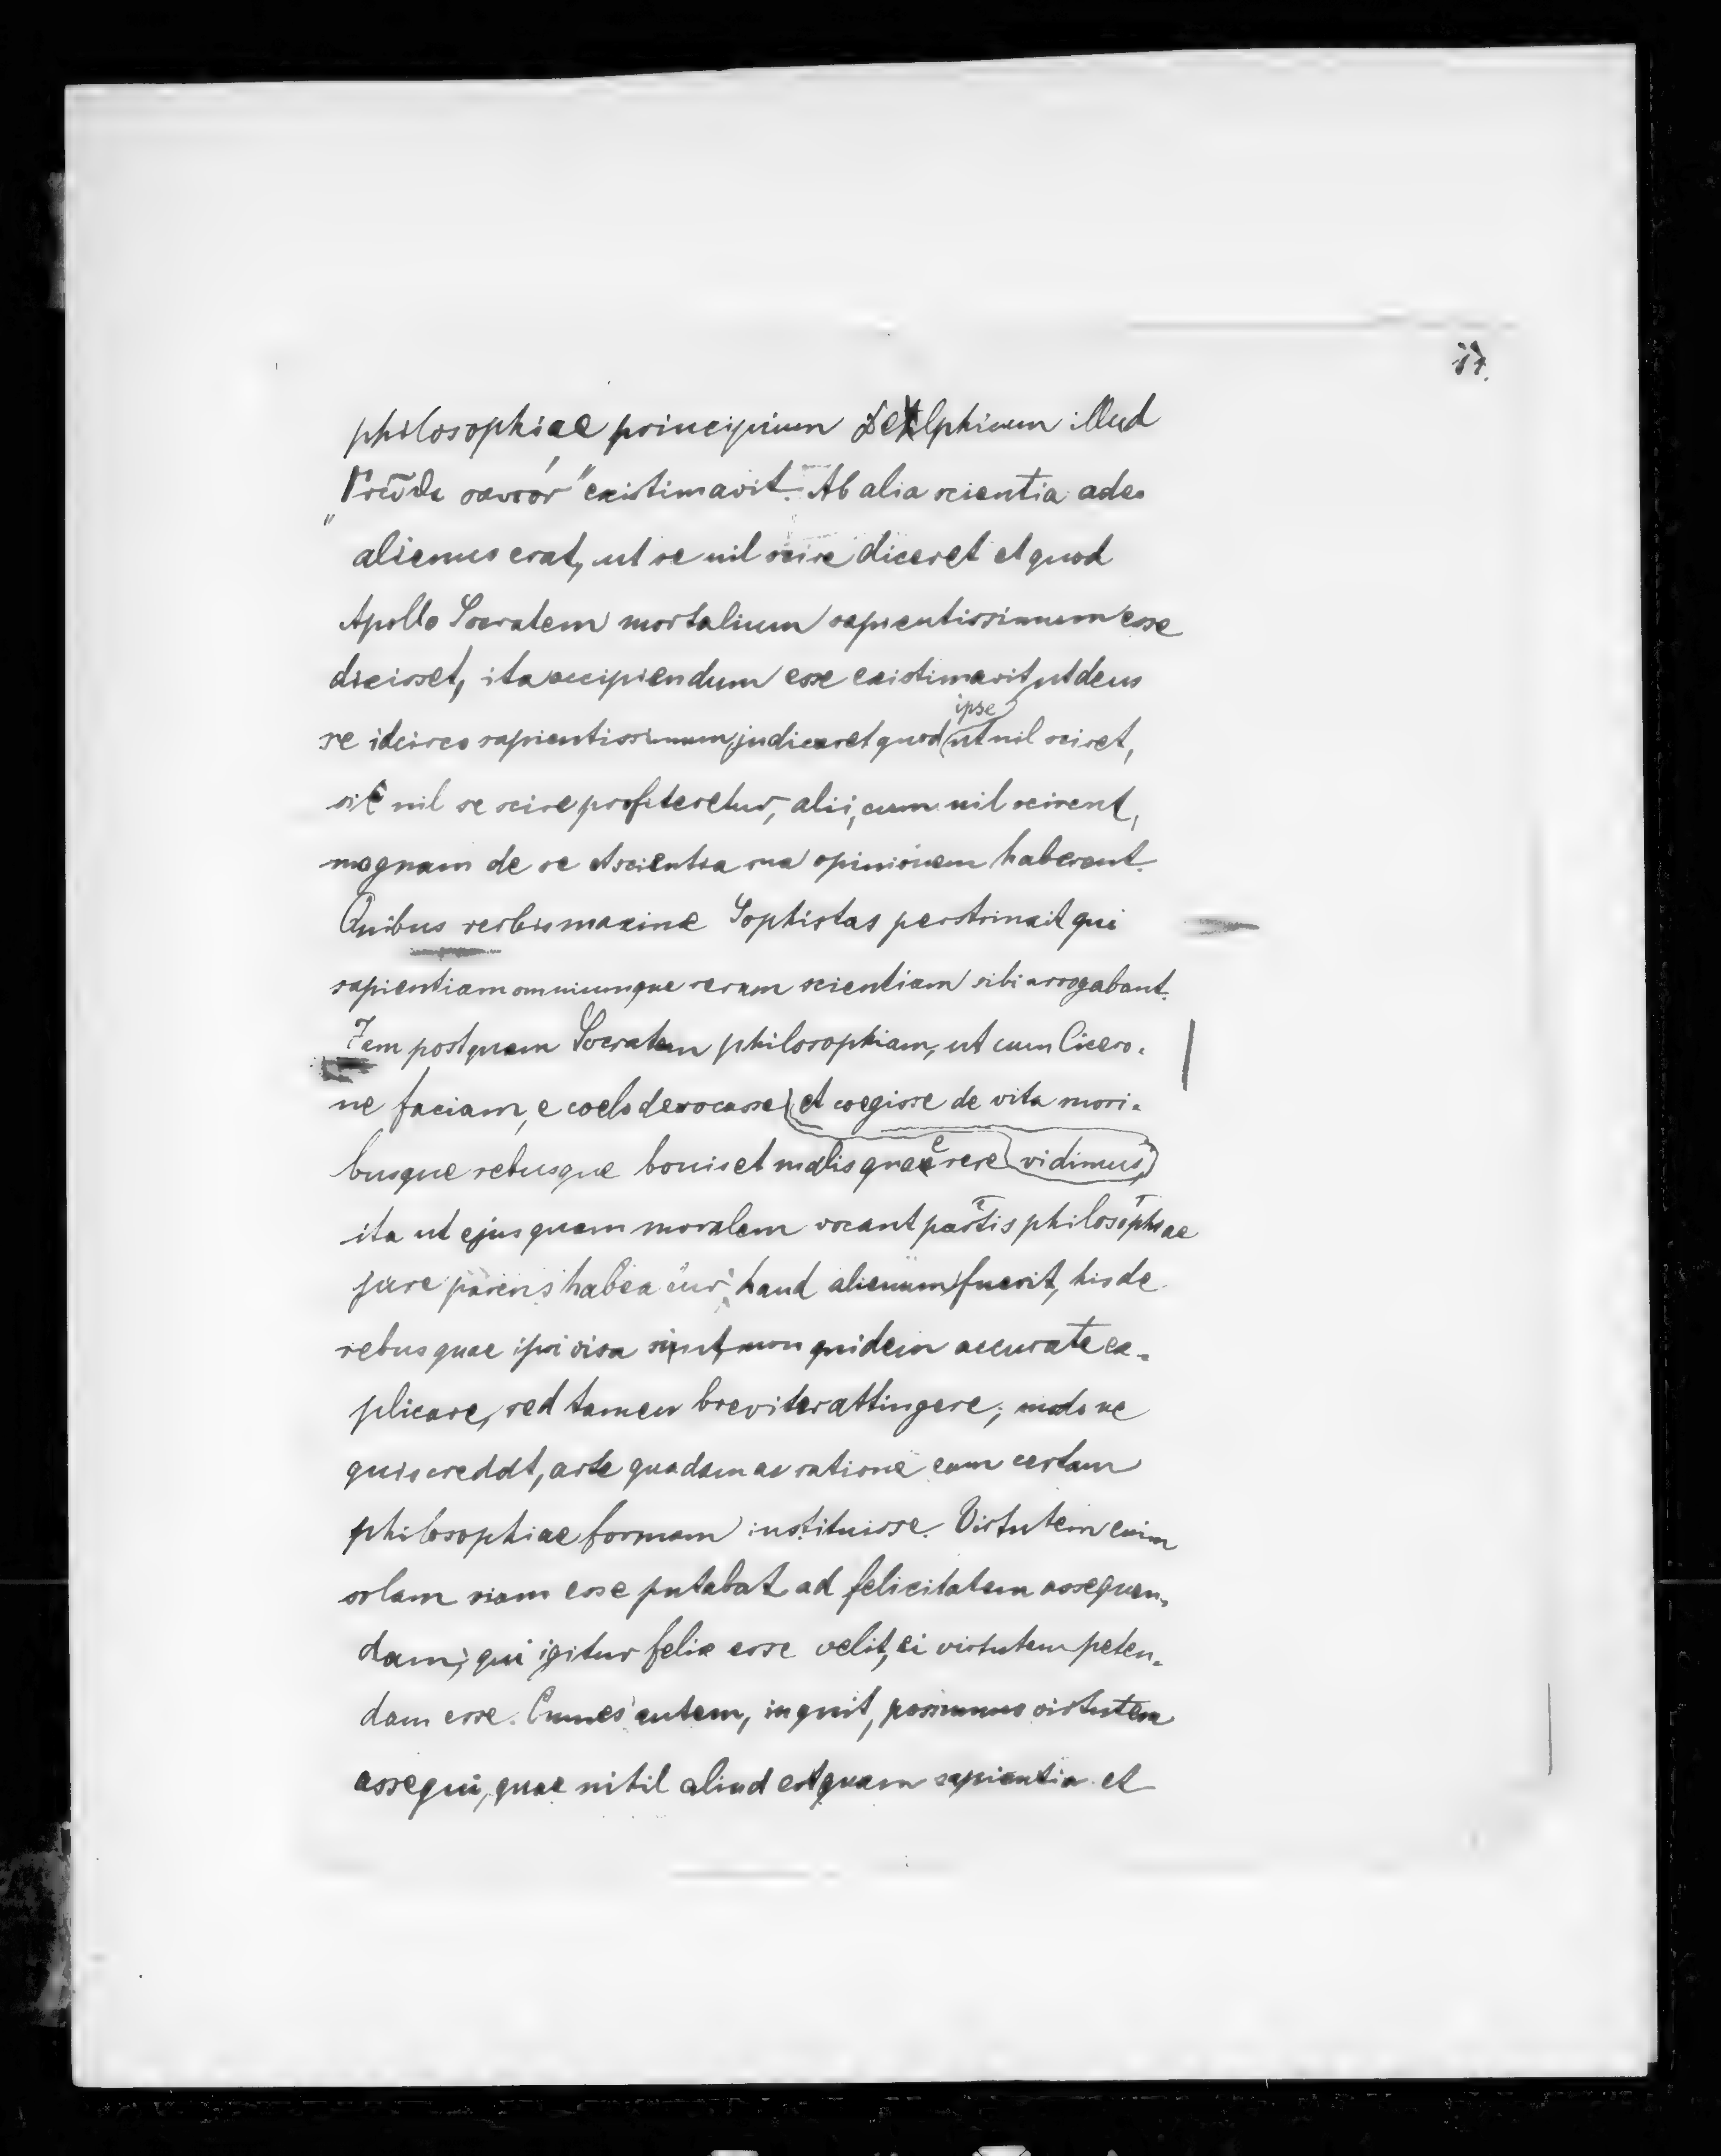 17.
philosophiae principium Delphicum illud
„Γνῶθι σαυτόν“ existimavit. Ab alia scientia adeo
alienus erat, ut se nil scire diceret et quod
Apollo Socratem mortalium sapientissimum esse
dixisset, ita accipiendum esse existimavit ut deus
se idcirco sapientissimum judicaret quod ipse ut nil sciret,
sic nil se scire profiteretur, alii, cum nil scirent,
magnam de se et scientia sua opinionem haberent.
Quibus verbis maxime Sophistas perstrinxit qui
sapientiam omniumque rerum scientiam sibi arrogabant.
Jam postquam Socratem philosophiam, ut cum Cicero-
ne faciam, e coelo devocasse et coegisse de vita mori-
busque rebusque bonis et malis quaerere vidimus,
ita ut ejus quam moralem vocant partis philosophiae
jure parens habeatur, haud alienum fuerit, his de
rebus quae ipsi visa sint, non quidem accurate ex-
plicare, sed tamen breviter attingere; modo ne
quis credat, arte quadam ac ratione eum certam
philosophiae formam instituisse. Virtutem enim
solam viam esse putabat ad felicitatem assequen-
dam; qui igitur felix esse velit, ei virtutem peten-
dam esse. Omnes autem, inquit, possumus virtutem
assequi, quae nihil aliud est quam sapientia et